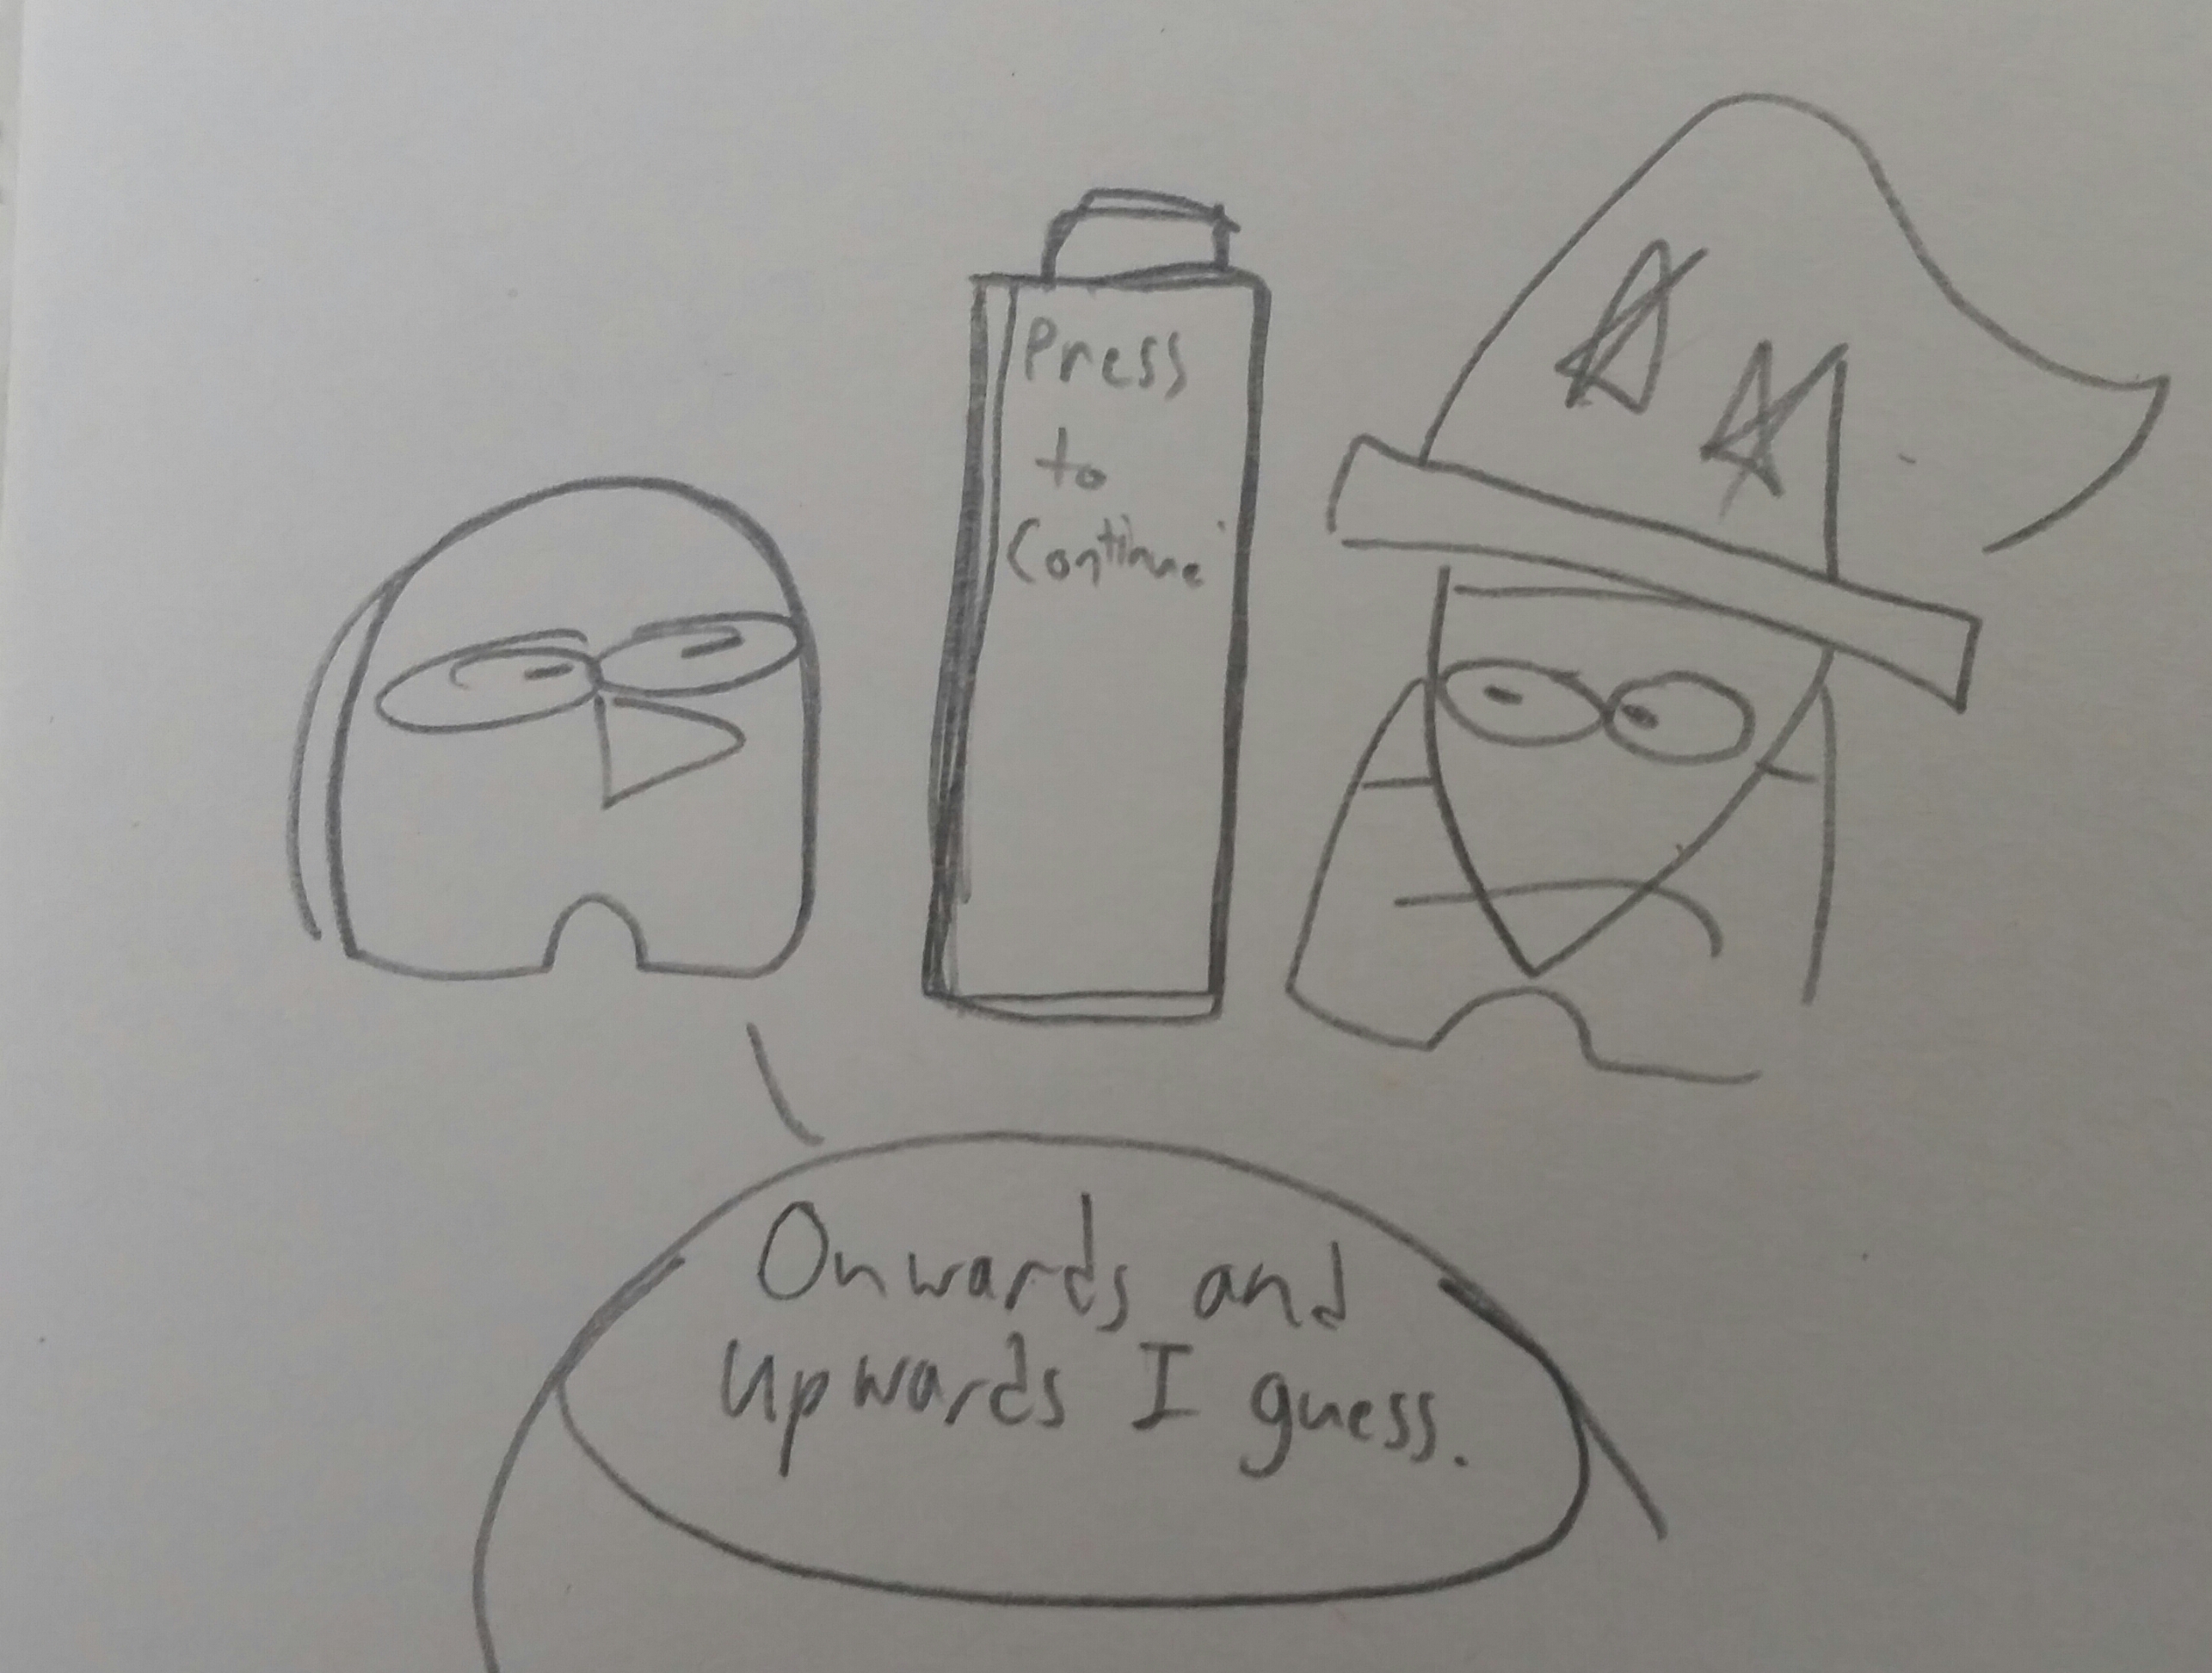 Press
to
Continue
Onwards and
Upwards I guess.